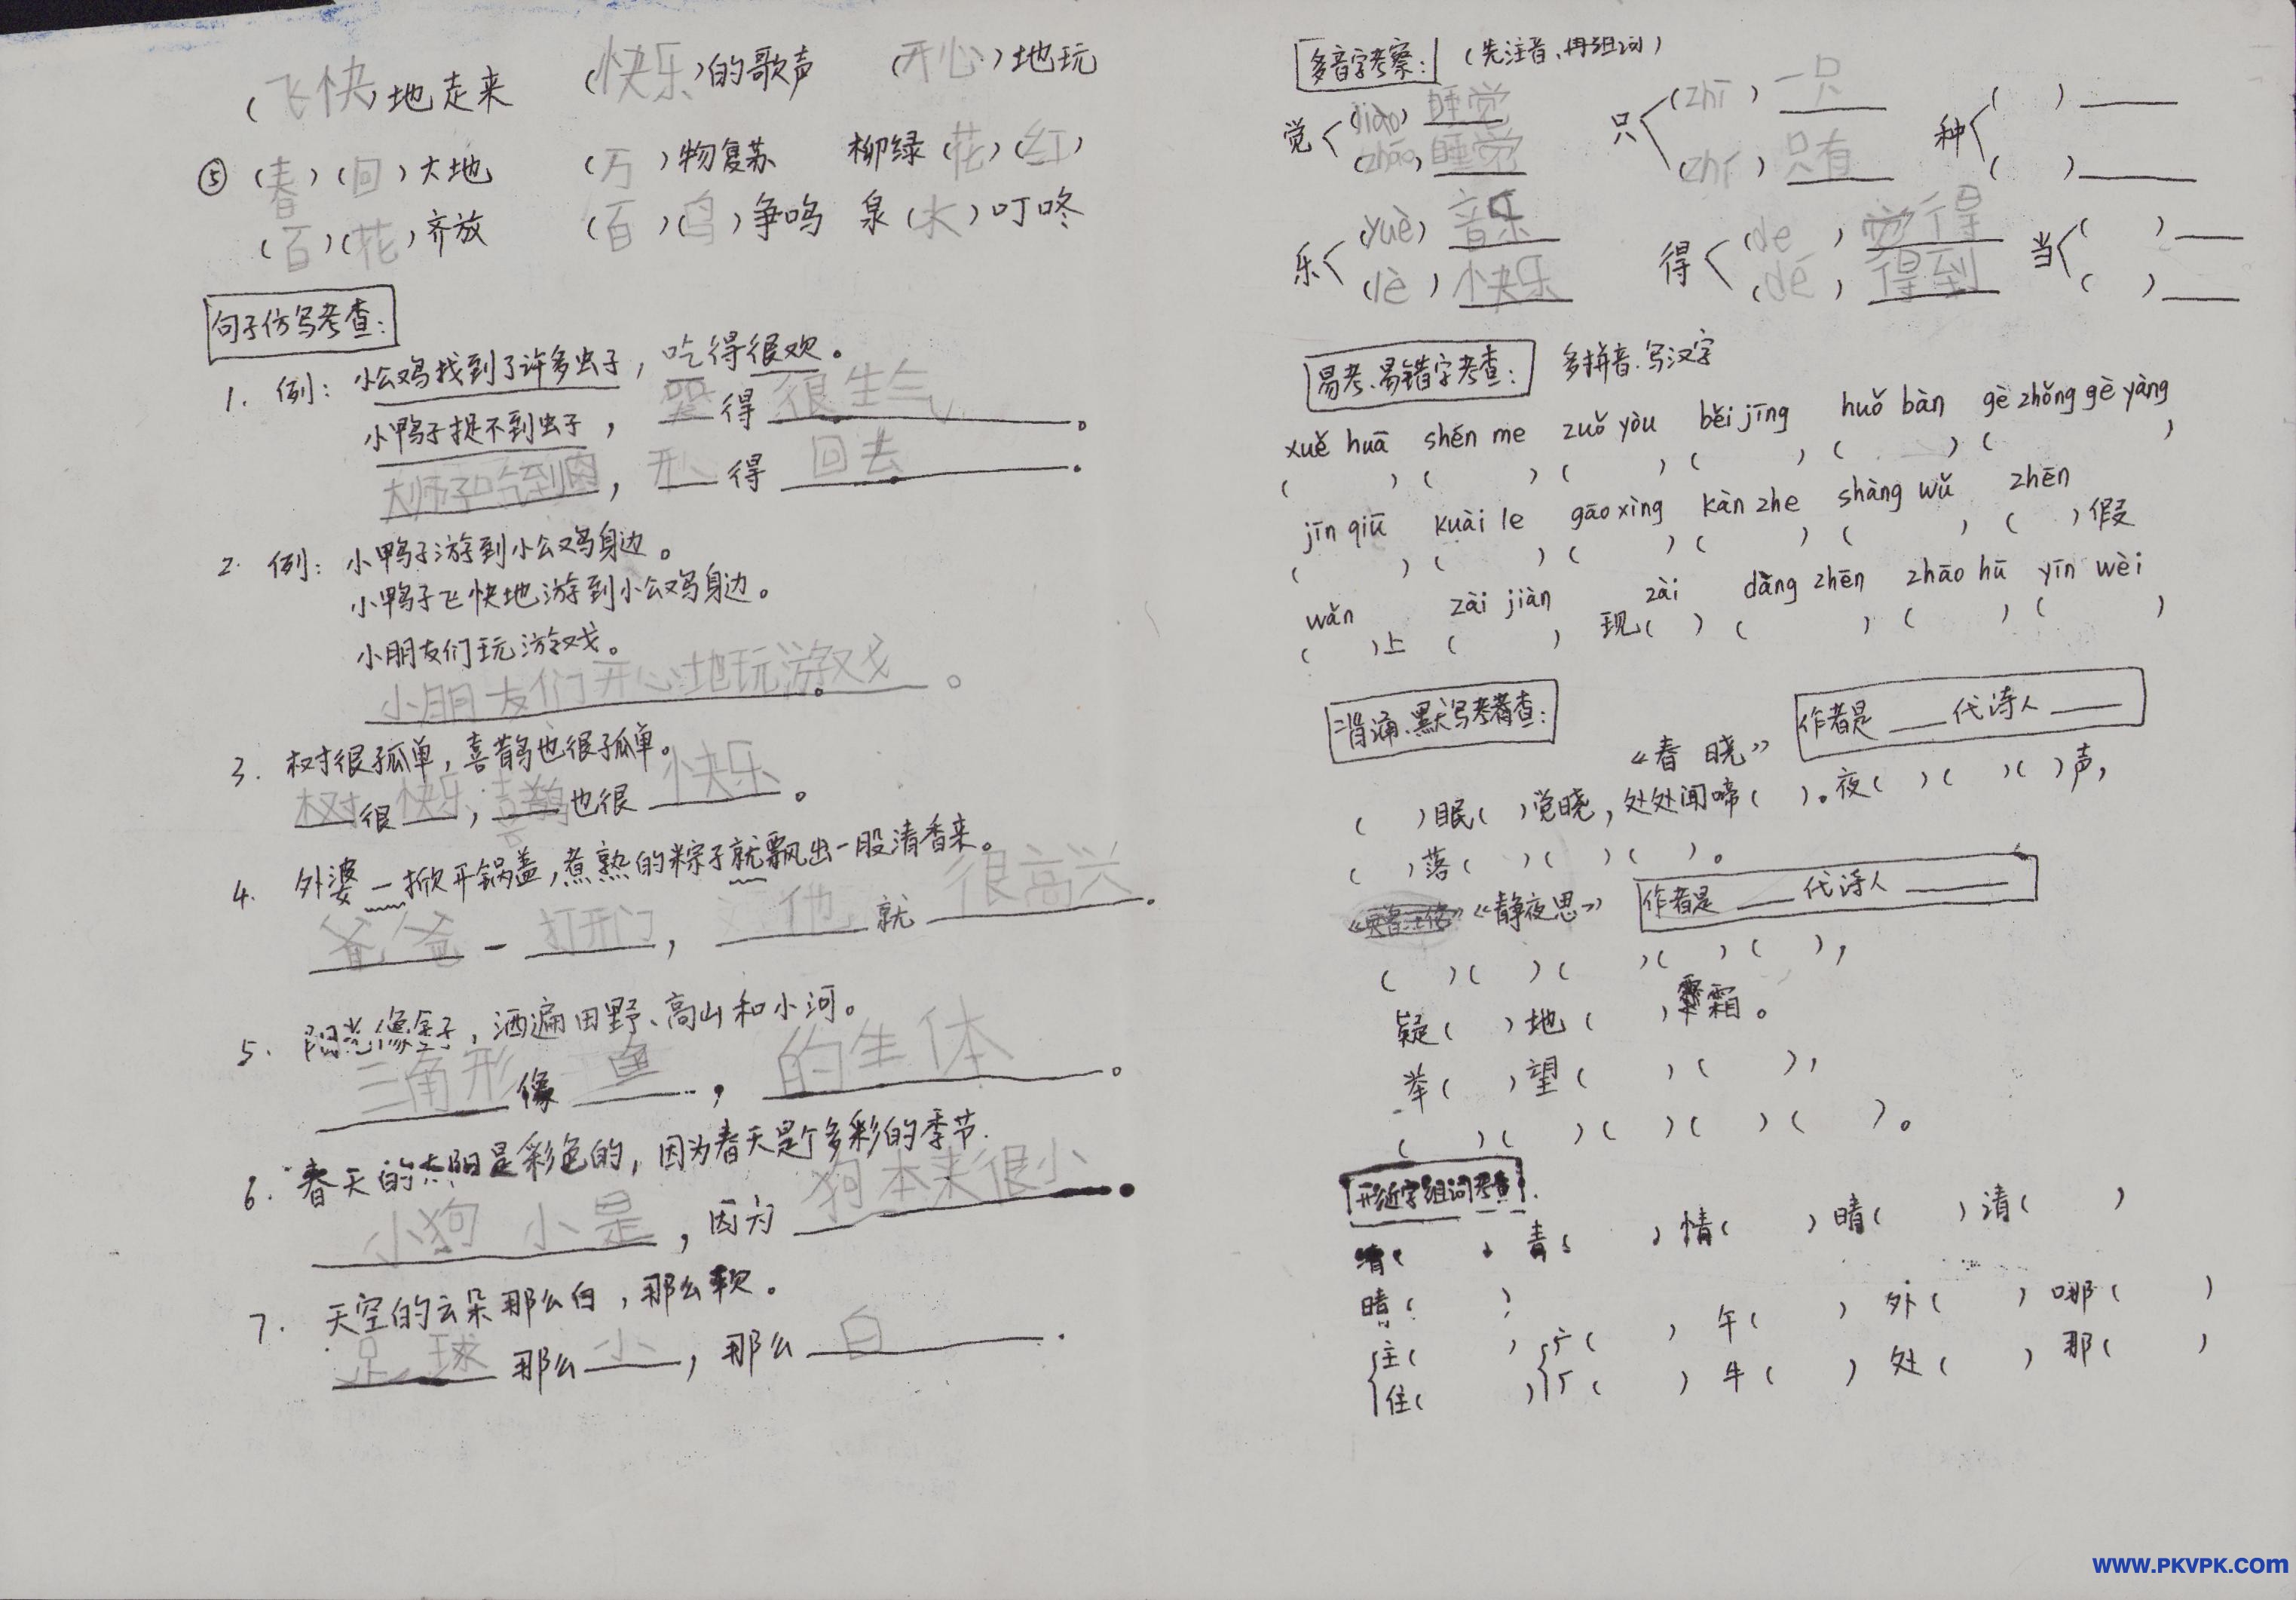 (飞快)地走来 (快乐)的歌声 (开心)地玩
⑤ (春)(回)大地 (万)物复苏 柳绿(花)(红)
(百)(花)齐放 (百)(鸟)争鸣 泉(水)叮咚
句子仿写考查:
1. 例: 小公鸡找到了许多虫子, 吃得很欢。
小鸭子捉不到虫子, 哭得很生气。
大狮子吃到肉, 开心得回去.
2. 例: 小鸭子游到小公鸡身边。
小鸭子飞快地游到小公鸡身边。
小朋友们玩游戏。
小朋友们开心地玩游戏。
3. 树很孤单, 喜鹊也很孤单。
树很快乐, 喜鹊也很快乐。
4. 外婆一掀开锅盖, 煮熟的粽子就飘出一股清香来。
爸爸一打开门, 他就很高兴.
5. 阳光像金子, 洒遍田野、高山和小河。
三角形像鱼, 的生体。
6. 春天的太阳是彩色的, 因为春天是个多彩的季节.
小狗小是, 因为狗本来很小.
7. 天空的云朵那么白, 那么软。
足球那么小, 那么白.
多音字考察: (先注音、再组词)
觉 (jiào) 睡觉 只 (zhī) 一只 种 ( ) ____
(zhāo) 睡觉 (zhǐ) 只有 ( ) ____
乐 (yuè) 音乐 得 (de) 觉得 当 ( ) ____
(lè) 快乐 (dé) 得到 ( ) ____
易考、易错字考查: 多拼音.写汉字
xuě huā shén me zuǒ yòu běi jīng huǒ bàn gè zhǒng gè yàng
( ) ( ) ( ) ( ) ( ) ( )
jīn qiū kuài le gāo xìng kàn zhe shàng wǔ zhēn
( ) ( ) ( ) ( ) ( ) ( )假
wǎn zài jiàn zài dāng zhēn zhāo hū yīn wèi
( )上 ( ) 现( ) ( ) ( ) ( )
背诵、默写考查:
《春晓》 作者是 ___ 代诗人 ___
( )眠( )觉晓, 处处闻啼( )。夜( )( )( )声,
( )落( )( )( )。
《静夜思》 作者是 ___ 代诗人 ___
( )( )( )( )( ),
疑( )地( )霜。
举( )望( )( ),
( )( )( )( )( )。
形近字组词考查.
清( ) 青( ) 情( ) 晴( ) 清( )
睛( )
主( ) 广( ) 午( ) 外( ) 哪( )
住( ) 厂( ) 牛( ) 处( ) 那( )
WWW.PKVPK.COM